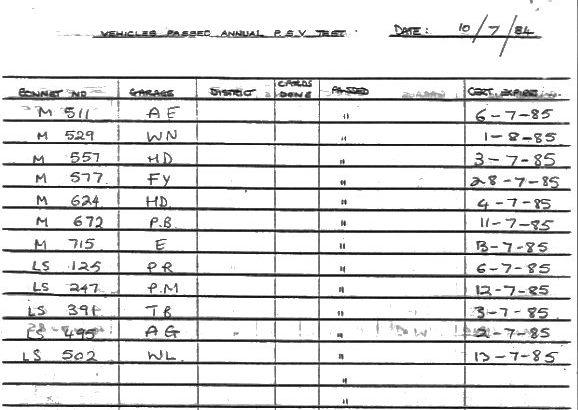 VEHICLES PASSED ANNUAL P.S.V TEST. DATE: 10/7/84
BONNET NO GARAGE DISTRICT CARDS DONE PASSED CERT. EXPIRES
M 511 AE " 6-7-85
M 529 WN " 1-8-85
M 557 HD " 3-7-85
M 577 FY " 28-7-85
M 624 HD " 4-7-85
M 672 P.B " 11-7-85
M 715 E " 13-7-85
LS 125 P.R " 6-7-85
LS 247 P.M " 12-7-85
LS 391 TB " 3-7-85
LS 495 AG " 2-7-85
LS 502 WL " 13-7-85
"
"